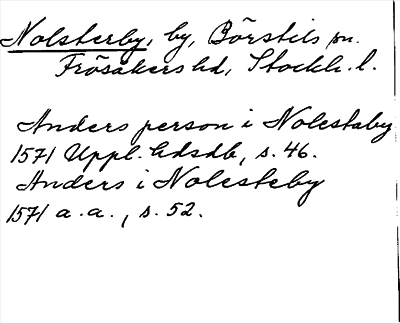 Nolsterby, by, Börstils sn.
Frösåkers hd, Stockh. l.
Anders person i Nolestaby
1571 Uppl. hdsdb, s. 46.
Anders i Nolesteby
1571 a. a., s. 52.